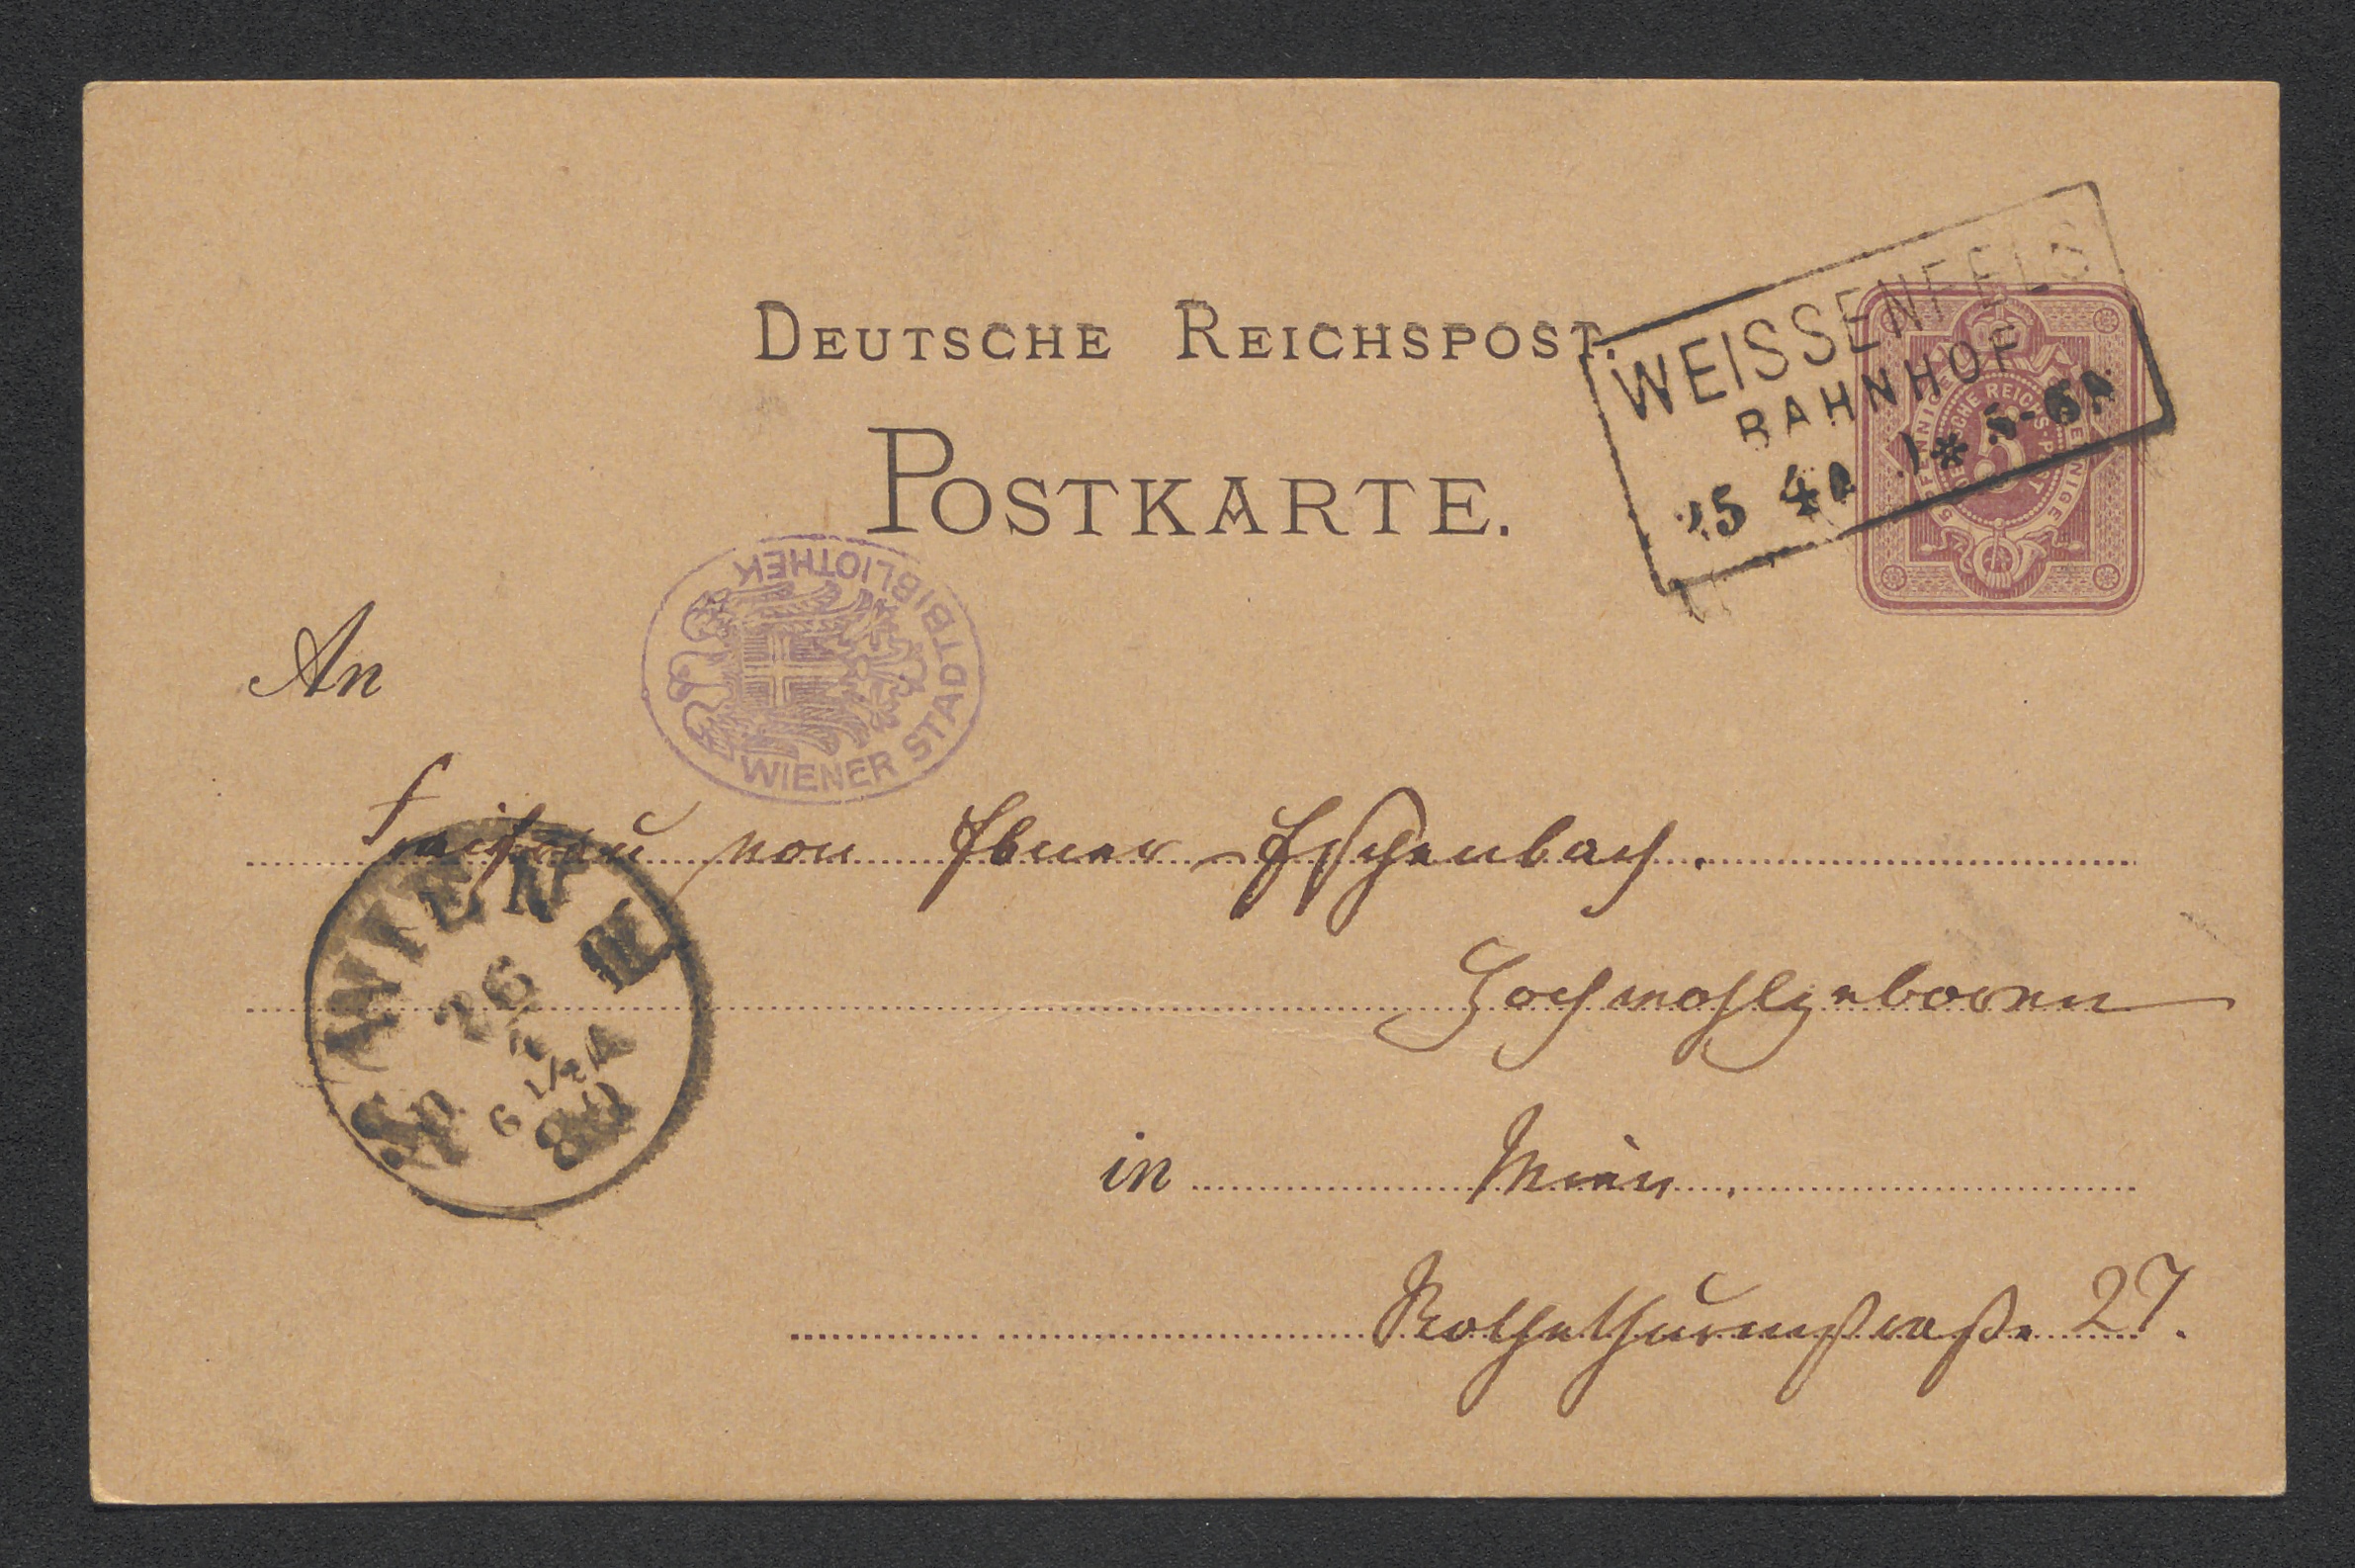 DEUTSCHE REICHSPOST.
POSTKARTE.
WEISSENFELS
BAHNHOF
25 4 * 5-6
5 PFENNIGE PFENNIGE
DEUTSCHE REICHS-POST
5
WIENER STADTBIBLIOTHEK
An
Freifrau von Ebner-Eschenbach.
Hochwohlgeboren
in Wien.
Rothethurmstraße 27.
WIEN
26
4
6 1/4 A
80